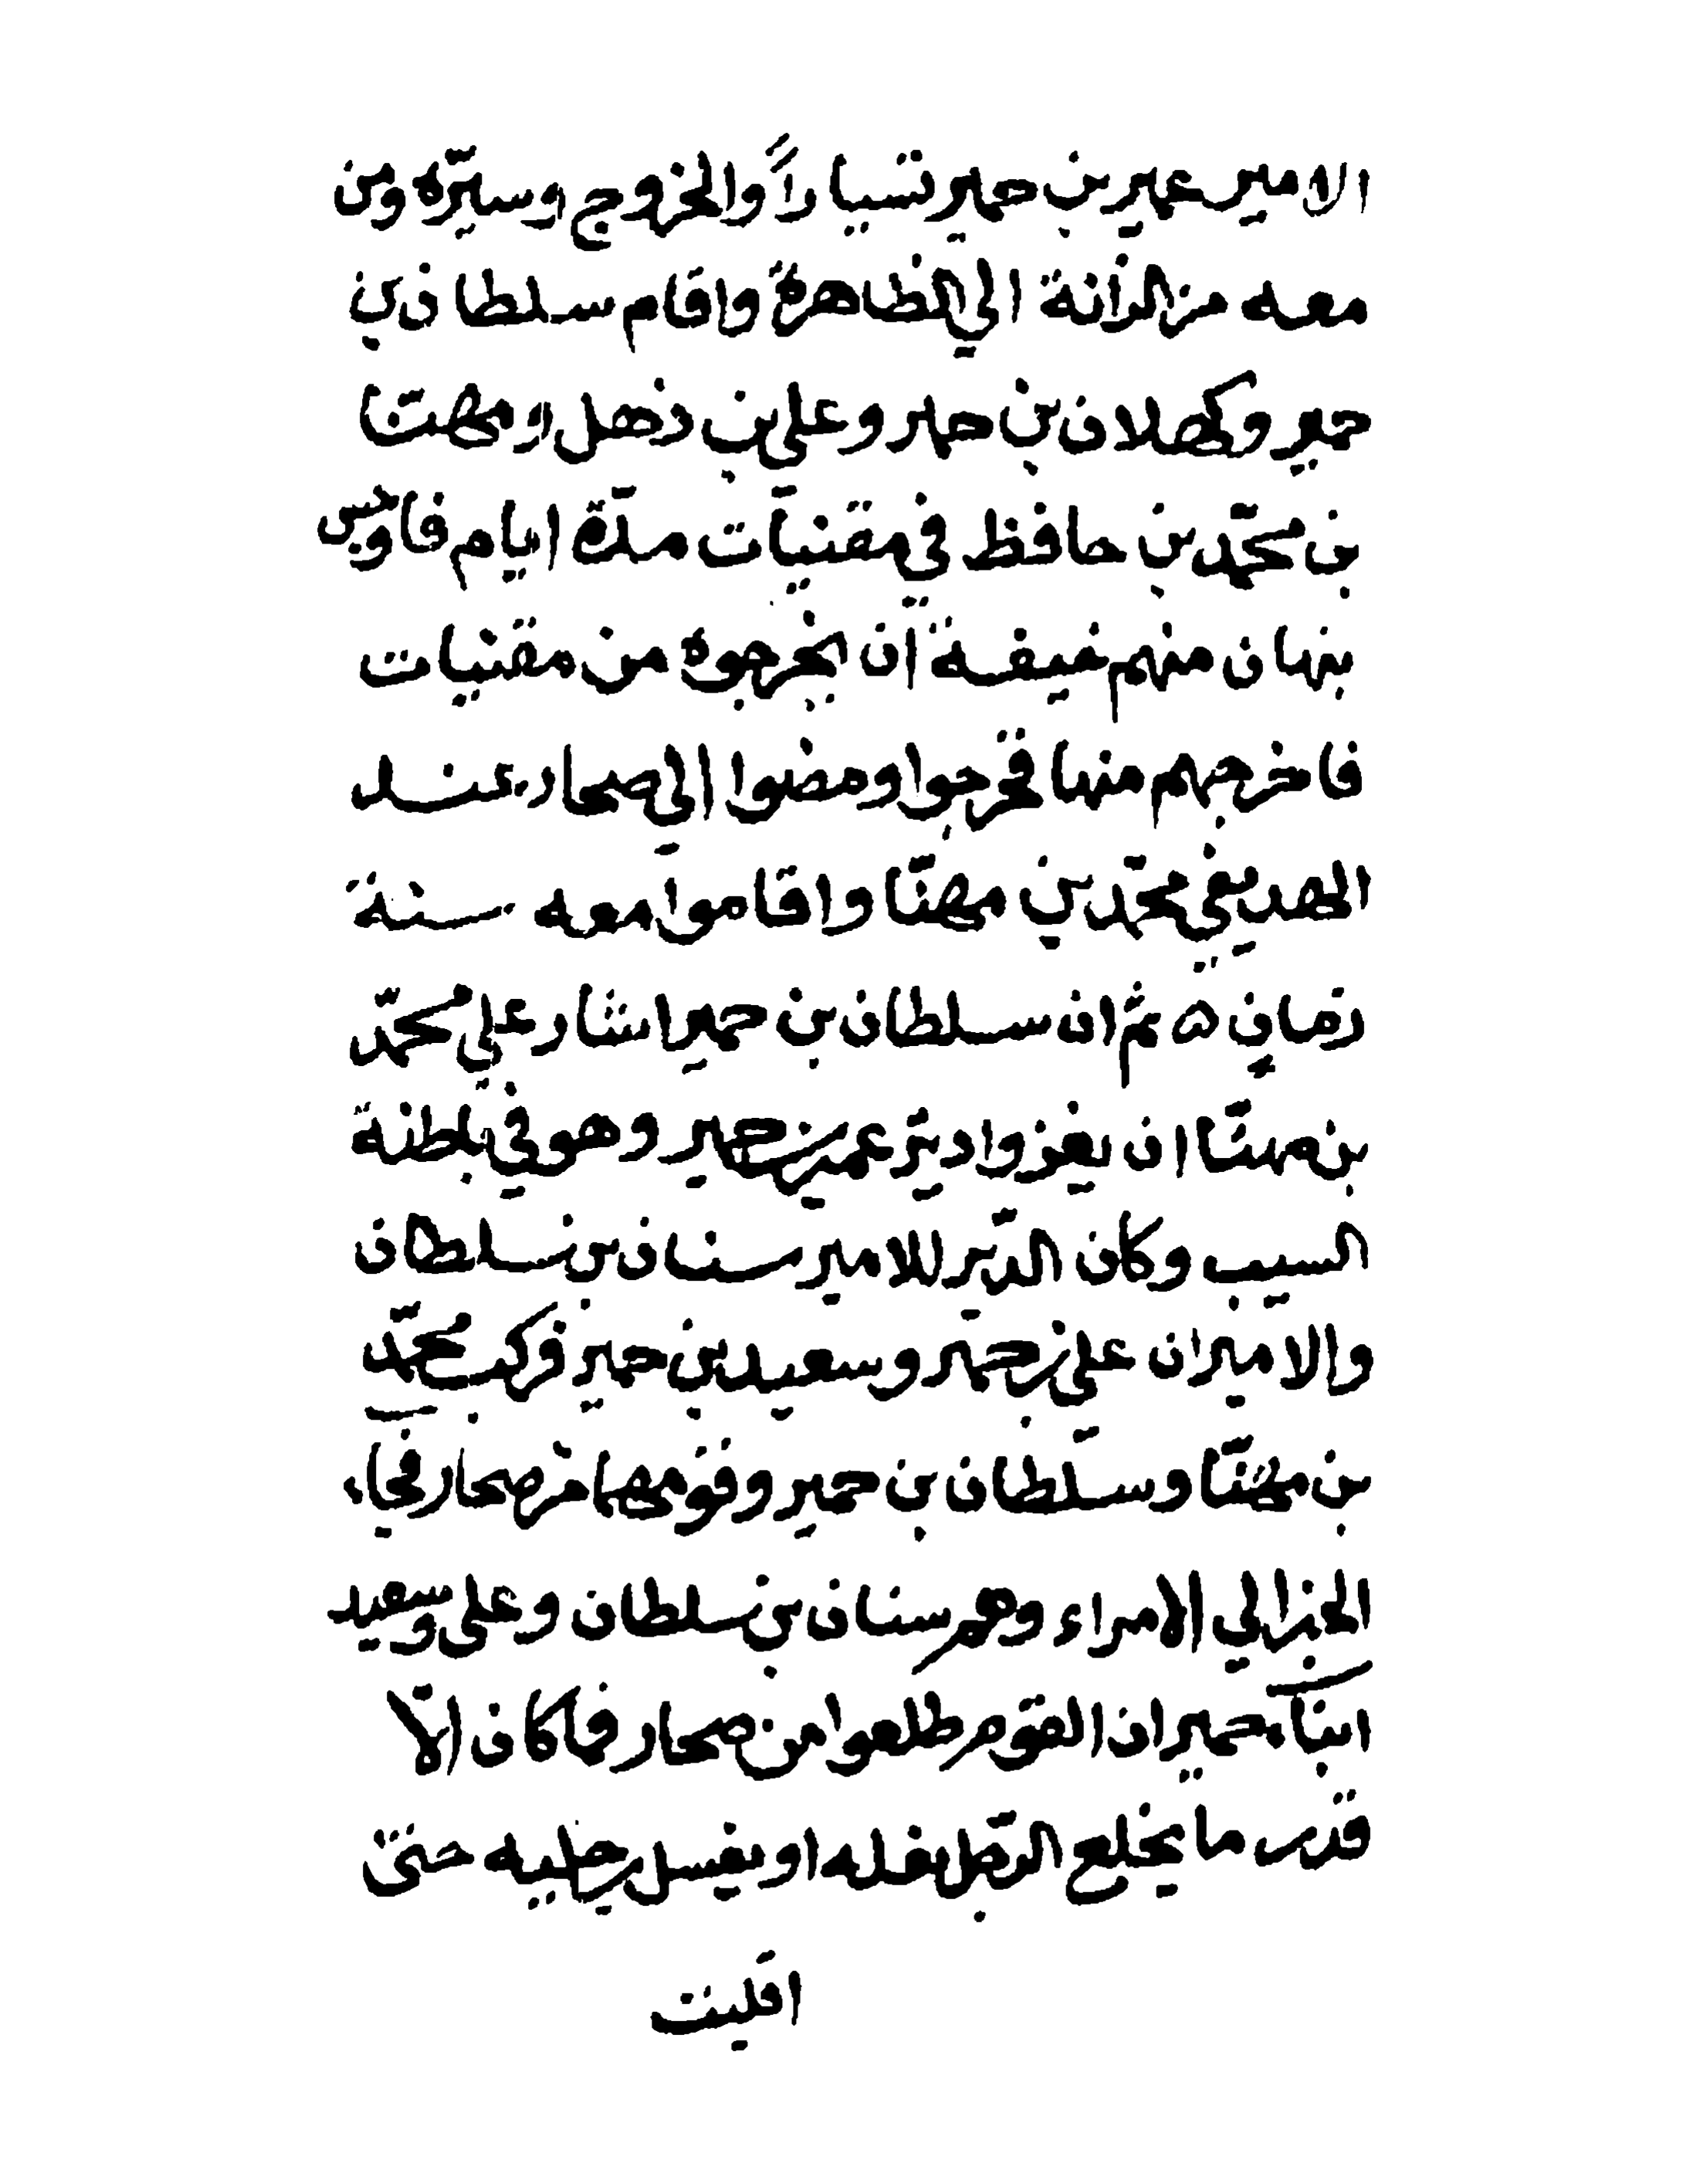 الامير عمير بن حمير تسيارا والخروج وسيره ومن
معه من الى الظاهرة واقام سلطان بن
حمير وكهلان بن حمير وعلي بن ذهل ومهنا
بن محمد بن حافظ في مقنيات مدة ايام فاوجس
نبهان منهم خيفة ان يخرجوه من مقنيات
فاخرجهم منها فخرجوا ومضوا الي صحار عند
الهديفي محمد بن مهنا واقاموا معه سنة
زمان ثم ان سلطان بن حمير اشار علي محمد
بن مهنا ان يغزوا دير عمير بن حمير وهو في باطنة
السيب وكان الدير للامير سنان بن سلطان
والاميران علي بن حمير وسعيد بن حمير فركب محمد
بن مهنا وسلطان بن حمير وقومهما من صحار فجاء
الخبر الي الامراء وهم سنان بن سلطان وعلي وسعيد
ابناء حمير ان القوم طلعوا من صحار فما كان الا
قدر ما يخلع الرجل نعله او يغسل رجليه حتى
اقبلت